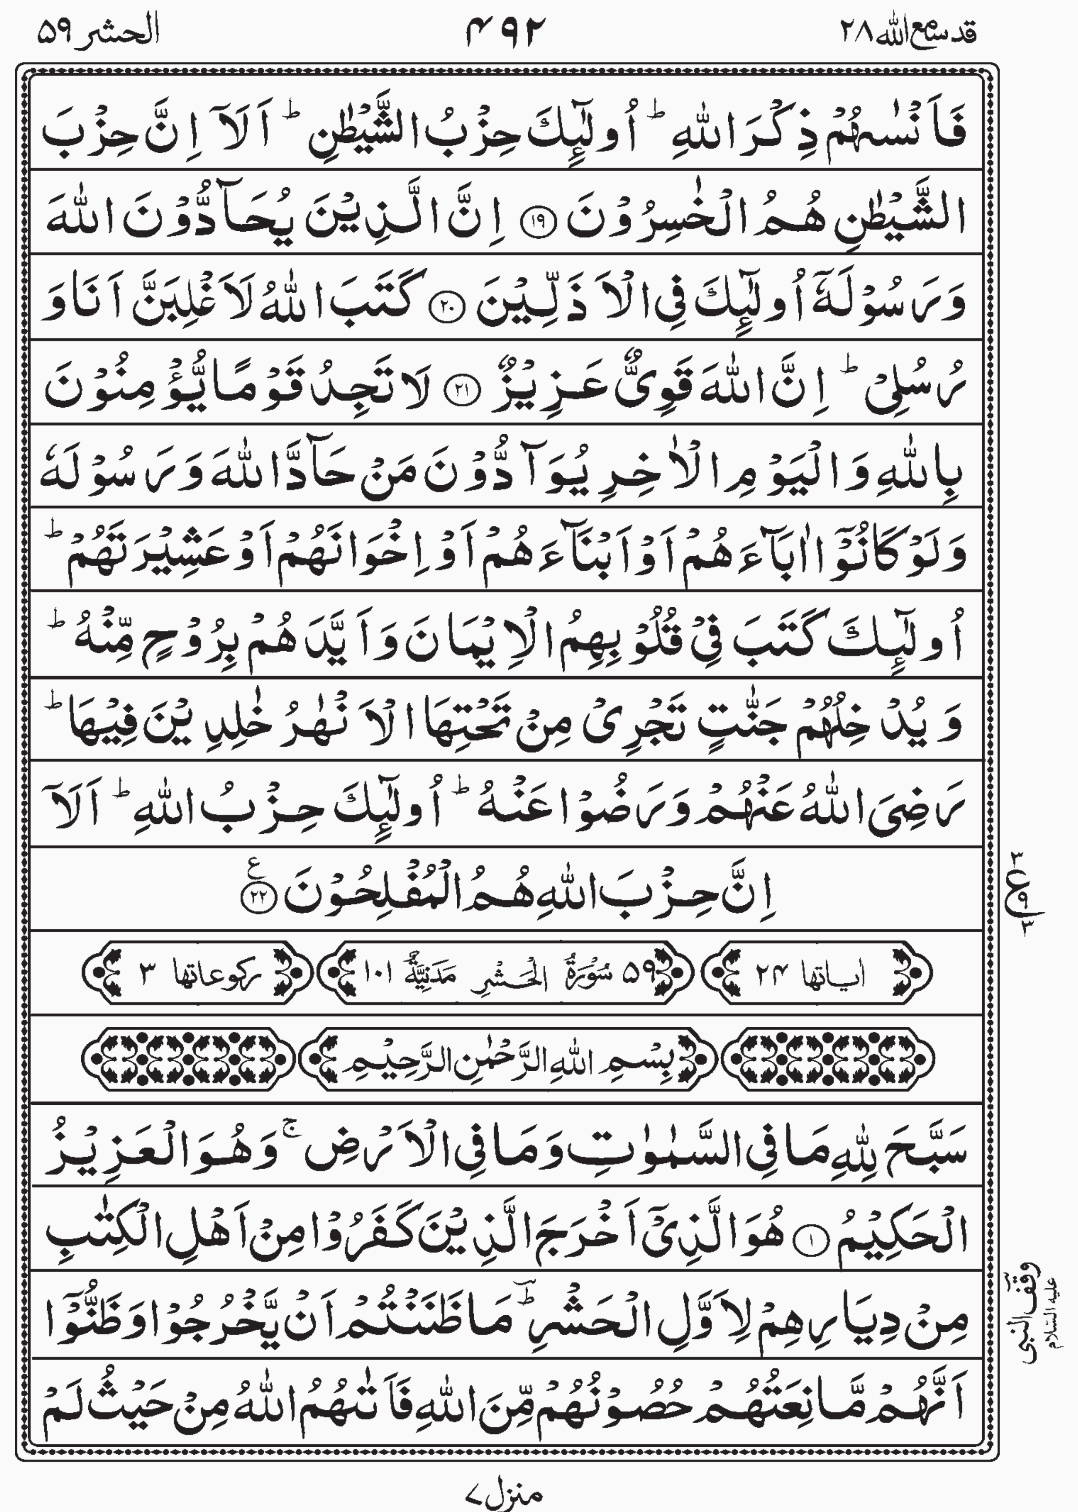 قد سمع الله ٢٨
٤٩٢
الحشر ٥٩
فَاَنْسٰىهُمْ ذِكْرَ اللّٰهِ ؕ اُولٰٓئِكَ حِزْبُ الشَّيْطٰنِ ؕ اَلَاۤ اِنَّ حِزْبَ
الشَّيْطٰنِ هُمُ الْخٰسِرُوْنَ ١٩ اِنَّ الَّذِيْنَ يُحَآدُّوْنَ اللّٰهَ
وَرَسُوْلَهٗۤ اُولٰٓئِكَ فِى الْاَذَلِّيْنَ ٢٠ كَتَبَ اللّٰهُ لَاَغْلِبَنَّ اَنَا وَ
رُسُلِىْ ؕ اِنَّ اللّٰهَ قَوِىٌّ عَزِيْزٌ ٢١ لَا تَجِدُ قَوْمًا يُّؤْمِنُوْنَ
بِاللّٰهِ وَالْيَوْمِ الْاٰخِرِ يُوَآدُّوْنَ مَنْ حَآدَّ اللّٰهَ وَرَسُوْلَهٗ
وَلَوْ كَانُوْۤا اٰبَآءَهُمْ اَوْ اَبْنَآءَهُمْ اَوْ اِخْوَانَهُمْ اَوْ عَشِيْرَتَهُمْ ؕ
اُولٰٓئِكَ كَتَبَ فِىْ قُلُوْبِهِمُ الْاِيْمَانَ وَاَيَّدَهُمْ بِرُوْحٍ مِّنْهُ ؕ
وَيُدْخِلُهُمْ جَنّٰتٍ تَجْرِىْ مِنْ تَحْتِهَا الْاَنْهٰرُ خٰلِدِيْنَ فِيْهَا ؕ
رَضِىَ اللّٰهُ عَنْهُمْ وَرَضُوْا عَنْهُ ؕ اُولٰٓئِكَ حِزْبُ اللّٰهِ ؕ اَلَاۤ
اِنَّ حِزْبَ اللّٰهِ هُمُ الْمُفْلِحُوْنَ ٢٢ ع
٣
ع ٩
٣
اٰياتها ٢٤
٥٩ سُوْرَةُ الْحَشْرِ مَدَنِيَّةٌ ١٠١
ركوعاتها ٣
بِسْمِ اللّٰهِ الرَّحْمٰنِ الرَّحِيْمِ
سَبَّحَ لِلّٰهِ مَا فِى السَّمٰوٰتِ وَمَا فِى الْاَرْضِ ۚ وَهُوَ الْعَزِيْزُ
الْحَكِيْمُ ١ هُوَ الَّذِىْۤ اَخْرَجَ الَّذِيْنَ كَفَرُوْا مِنْ اَهْلِ الْكِتٰبِ
مِنْ دِيَارِهِمْ لِاَوَّلِ الْحَشْرِ ؕ مَا ظَنَنْتُمْ اَنْ يَّخْرُجُوْا وَظَنُّوْۤا
اَنَّهُمْ مَّانِعَتُهُمْ حُصُوْنُهُمْ مِّنَ اللّٰهِ فَاَتٰىهُمُ اللّٰهُ مِنْ حَيْثُ لَمْ
وقف النبى
عليه السّلام
منزل ٧